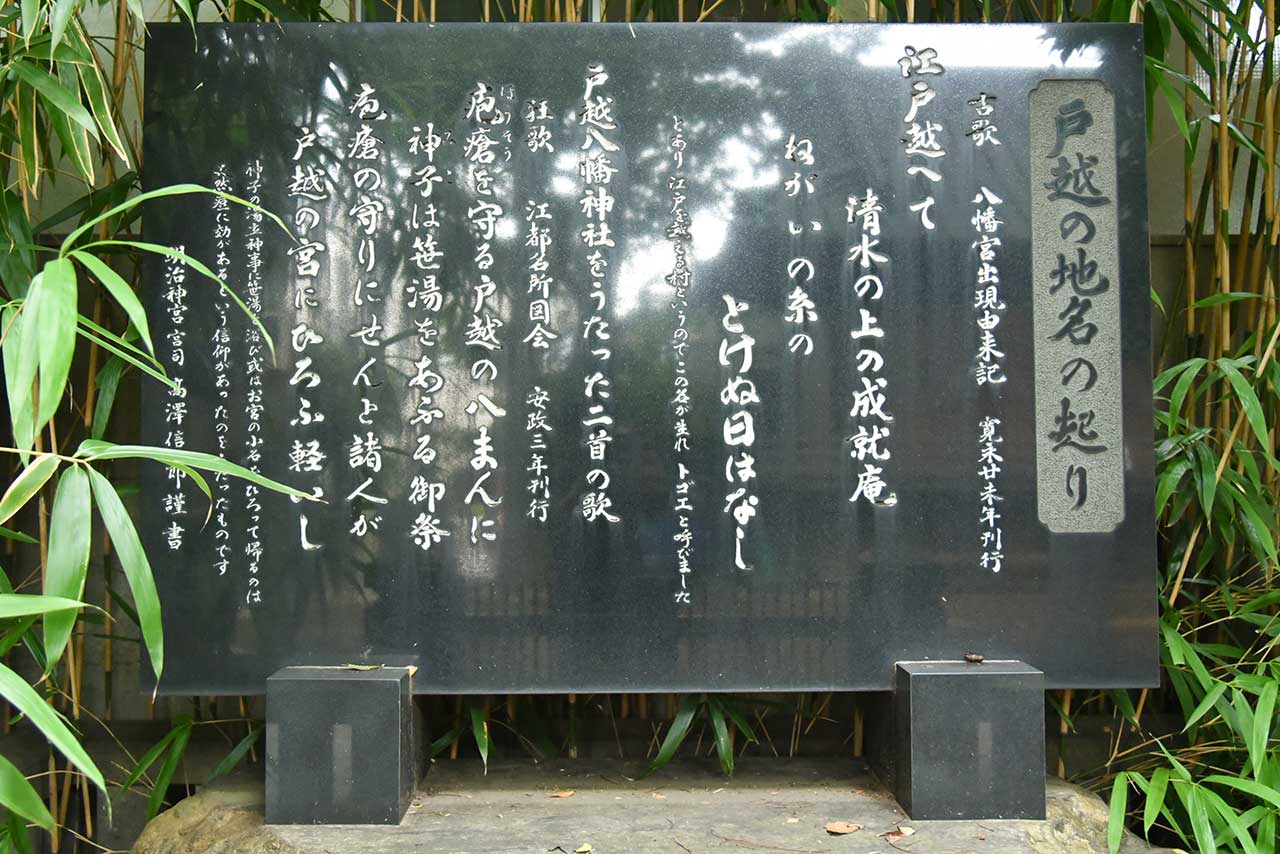 戸越の地名の起り
古歌 八幡宮出現由来記 寛永廿未年刊行
江戸越へて
清水の上の成就庵
ねがいの糸の
とけぬ日はなし
とあり 江戸を越える村というのでこの名が生れ トゴエと呼びました
戸越八幡神社をうたった二首の歌
狂歌 江都名所図会 安政三年刊行
ほうそう
疱瘡を守る戸越の八まんに
神子は笹湯をあふる御祭
疱瘡の守りにせんと諸人が
戸越の宮にひろふ軽いし
神子の湯立神事に笹湯を浴び或はお宮の小石をひろって帰るのは
天然痘に効があるという信仰があったのをうたったものです
明治神宮 宮司 高澤信一郎 謹書